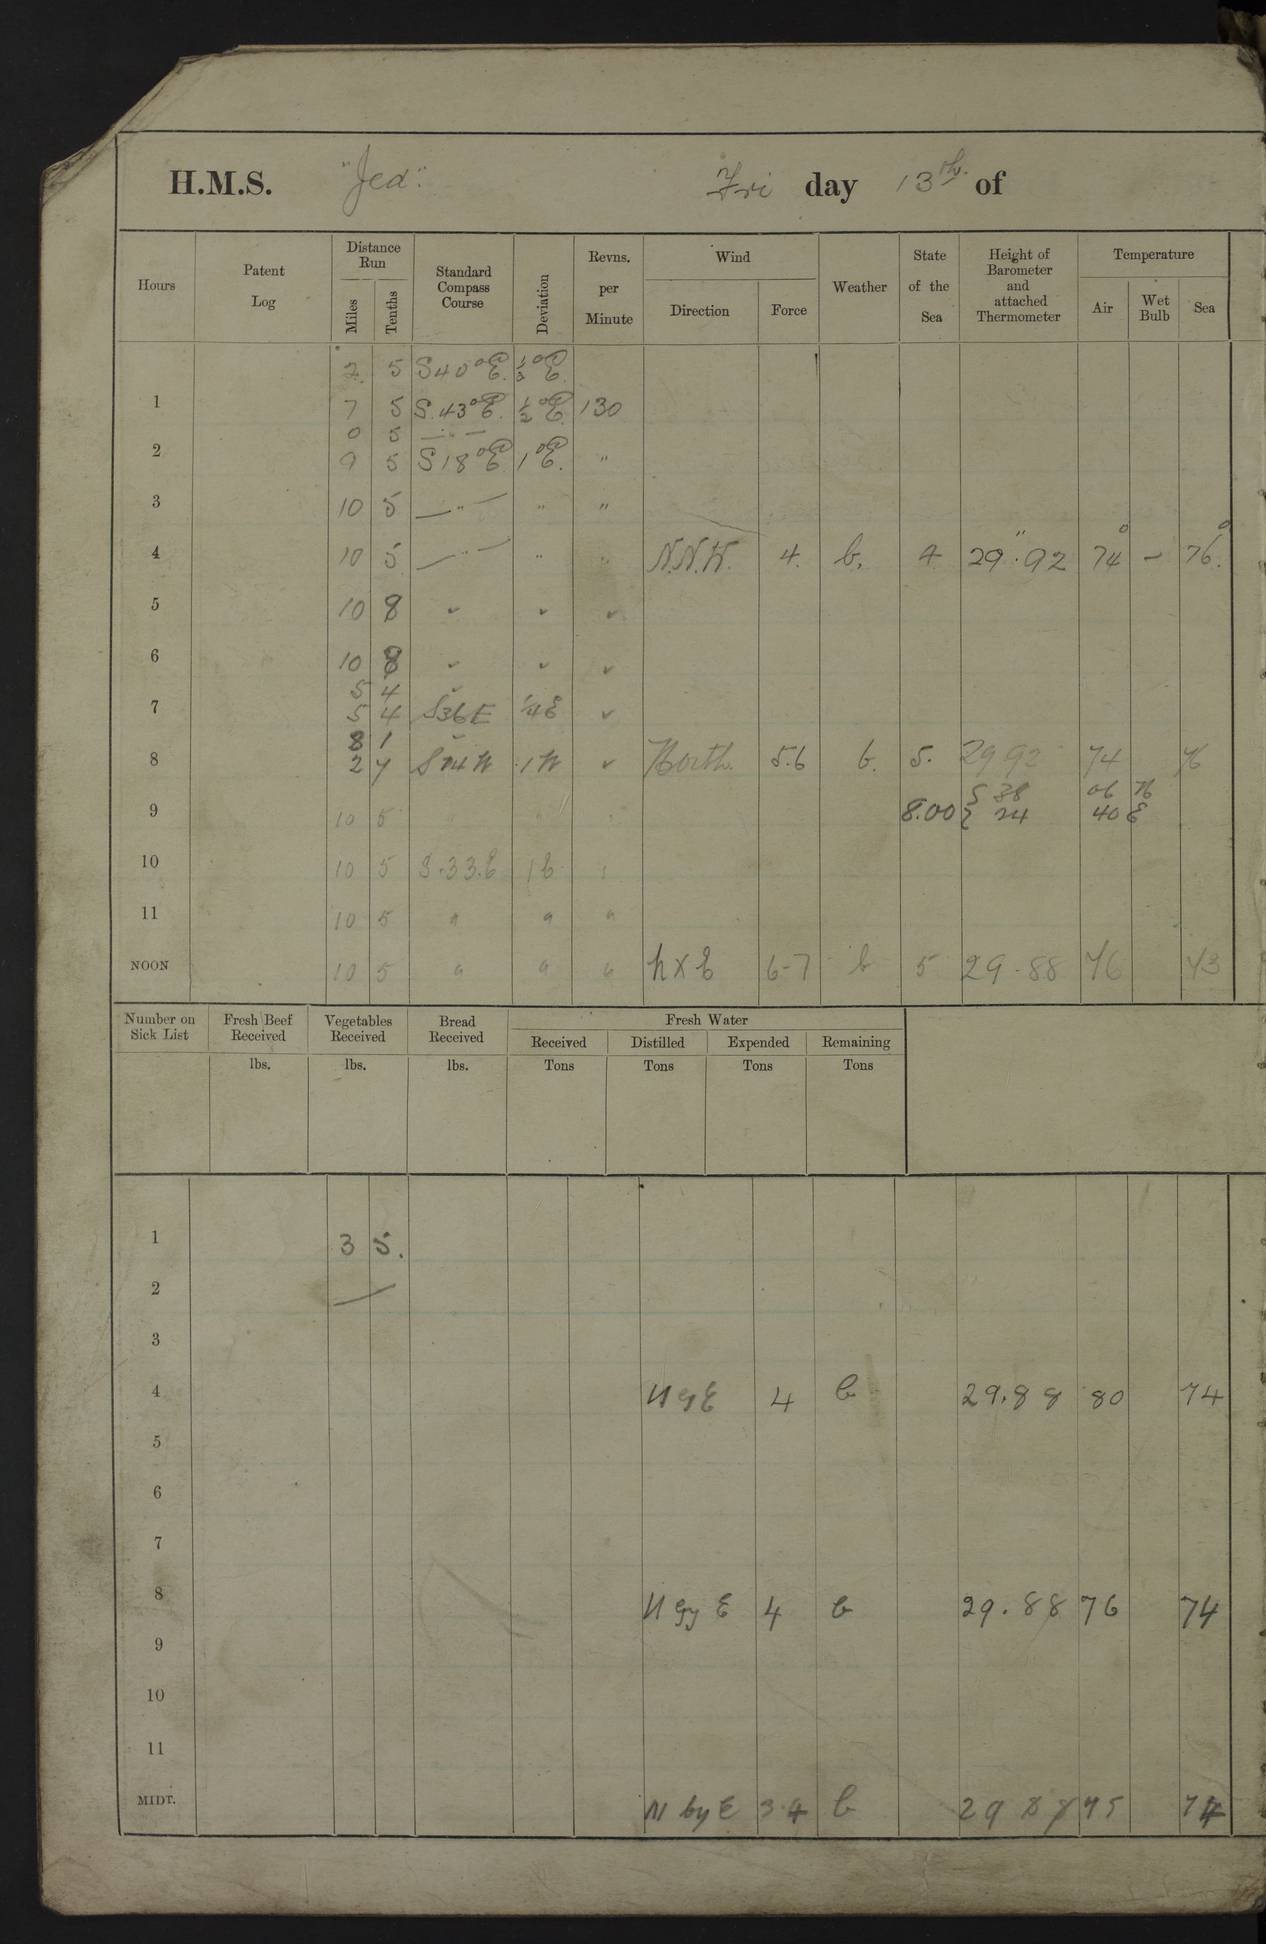 H.M.S. "Jed". Fri day 13th. of
Hours Patent Log Distance Run Miles Tenths Standard Compass Course Deviation Revns. per Minute Wind Direction Force Weather State of the Sea Height of Barometer and attached Thermometer Temperature Air Wet Bulb Sea
2 5 S40°E. ½°E.
1 7 5 S.43°E. ½°E. 130
0 5 — " —
2 9 5 S18°E 1°E. "
3 10 5 — " — " "
4 10 5 — " — " " N.N.W. 4. b. 4 29".92 74° – 76°.
5 10 8 ✓ ✓ ✓
6 10 8 ✓ ✓ ✓
5 4 ✓
7 5 4 S36E ¼E ✓
8 1 ✓
8 2 7 S14W 1W ✓ North. 5.6 b. 5. 29 92 74 76
38 06 N
9 10 5 " " " 8.00 { 24 40 E
10 10 5 S.33.E 1E "
11 10 5 " " "
NOON 10 5 " " " N x E 6-7 b 5 29.88 76 73
Number on Sick List Fresh Beef Received Vegetables Received Bread Received Fresh Water
Received Distilled Expended Remaining
lbs. lbs. lbs. Tons Tons Tons Tons
1 3 5.
2
3
4 N by E 4 b 29.88 80 74
5
6
7
8 N by E 4 b 29.88 76 74
9
10
11
MIDT. N by E 3.4 b 29 88 75 74